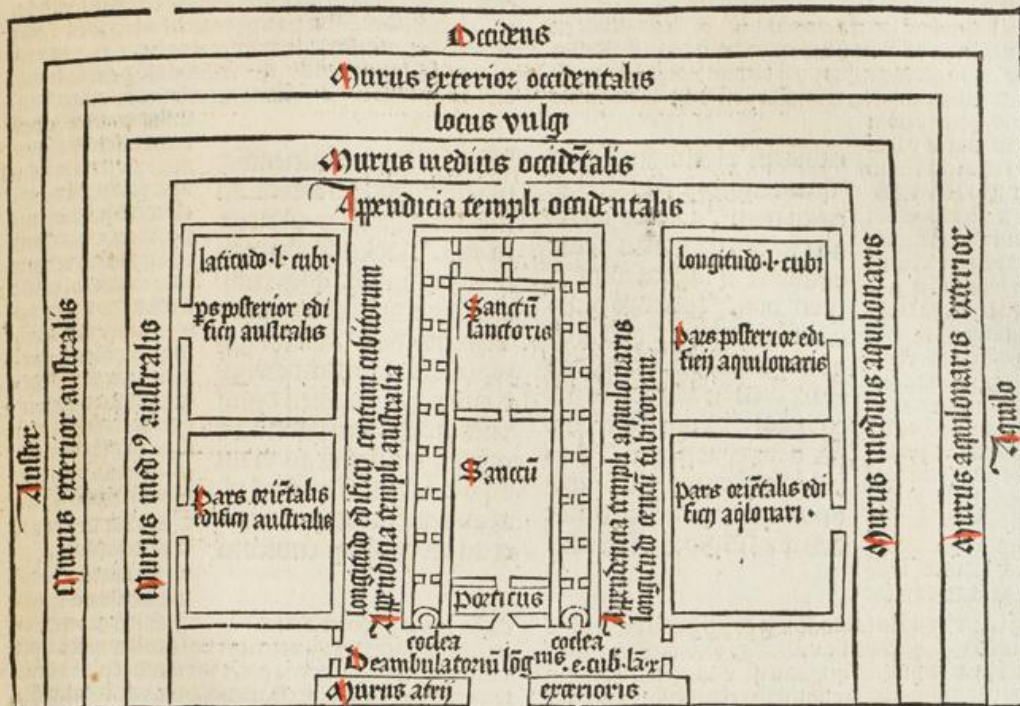 Occidens
Murus exterior occidentalis
locus vulgi
Murus medius occidētalis
Appendicia templi occidentalis
latitudo·l·cubi·
ps pſterior edi
ficij auſtralis
Pars oriētalis
edificij auſtralis
Auſter
Murus exterior auſtralis
Murus mediꝰ auſtralis
longitudo edificij centum cubitorum
Appendicia templi auſtralia
Sanctū
ſanctoris
Sanctū
porticus
coclea
coclea
Appendencia templi aquilonaris
longitudo centū cubitorum
longitudo·l·cubi
Pars pofterior edi
ficij aquilonaris
pars oriētalis edi
ficij aq̄lonari·
Murus medius aquilonaris
Murus aquilonaris exterior
Aquilo
Deambulatoriū lōg
Murus atrij exterioris